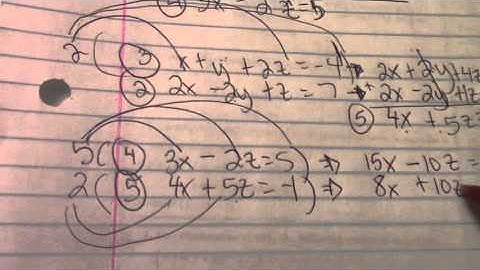 ④ 3x - 2z = 5
2( ③ x + y + 2z = -4) → 2x + 2y + 4z
② 2x - 2y + z = 7 → + 2x - 2y + z
⑤ 4x + 5z =
5( ④ 3x - 2z = 5 ⇒ 15x - 10z =
2( ⑤ 4x + 5z = -1) ⇒ 8x + 10z